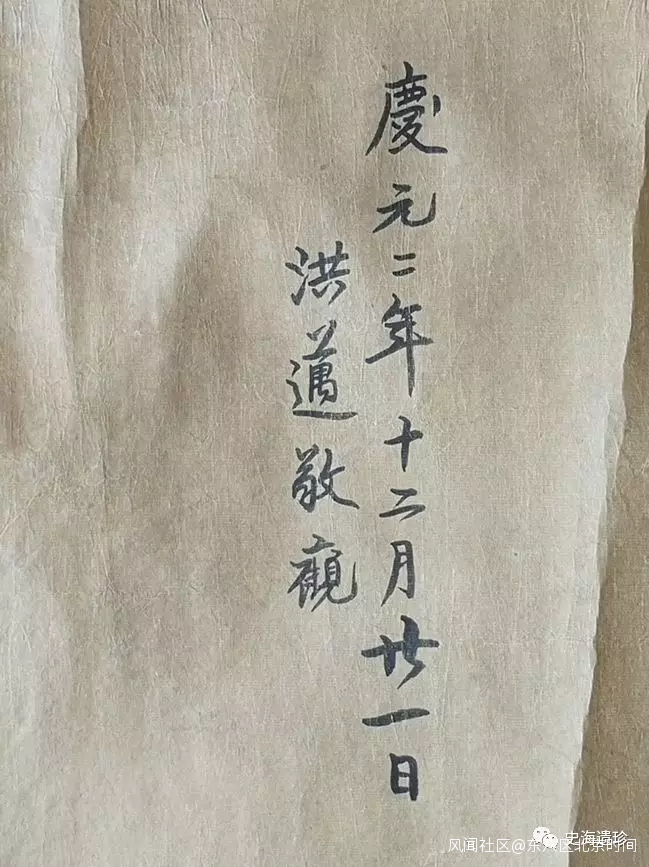 慶元二年十二月廿一日
洪邁敬觀
史海遺珍
风闻社区@东八区北京时间